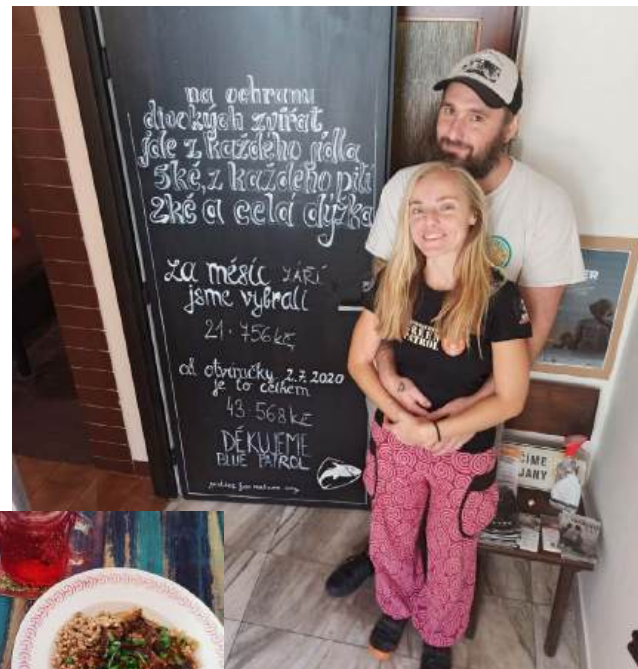 na ochranu
divokých zvířat
jde z každého jídla
5kč, z každého pití
2kč a celá dýžka
za měsíc ZÁŘÍ
jsme vybrali
21.756 kč
od otvíračky 2.7.2020
je to celkem
43.568 kč
DĚKUJEME
BLUE PATROL
GREEN
PATROL